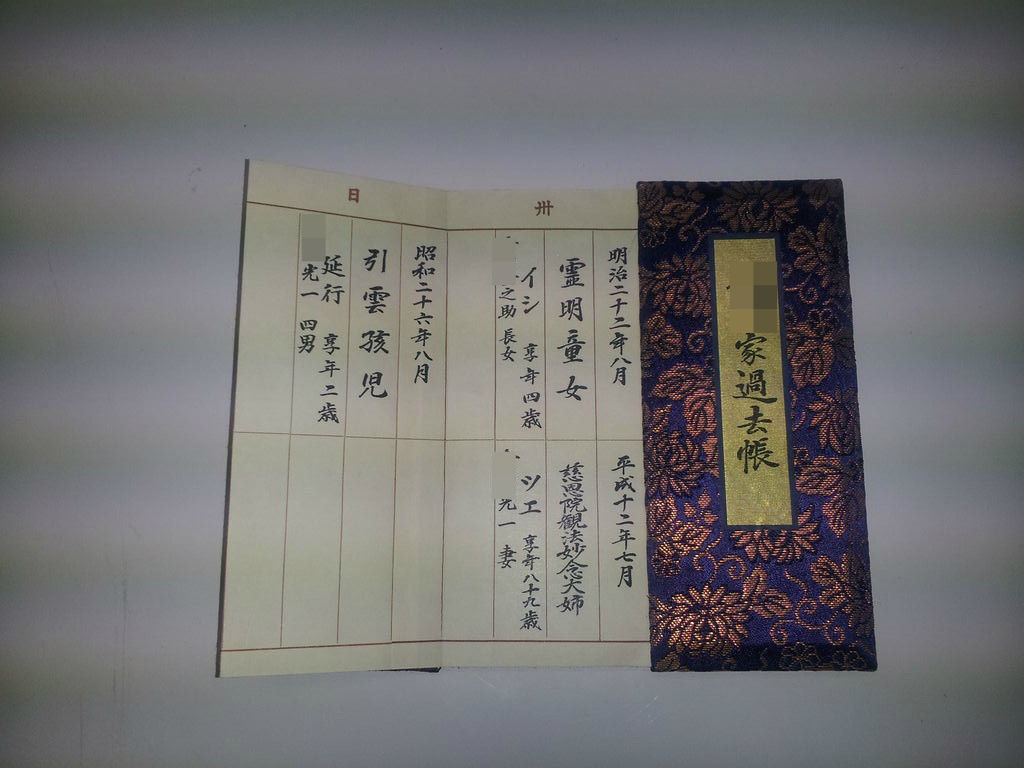 家過去帳
卅
日
明治二十二年八月
霊明童女
イシ 享年四歳
之助 長女
平成十二年七月
慈恩院観法妙念大姉
ツエ 享年八十九歳
光一 妻
昭和二十六年八月
引雲孩児
延行 享年二歳
光一 四男